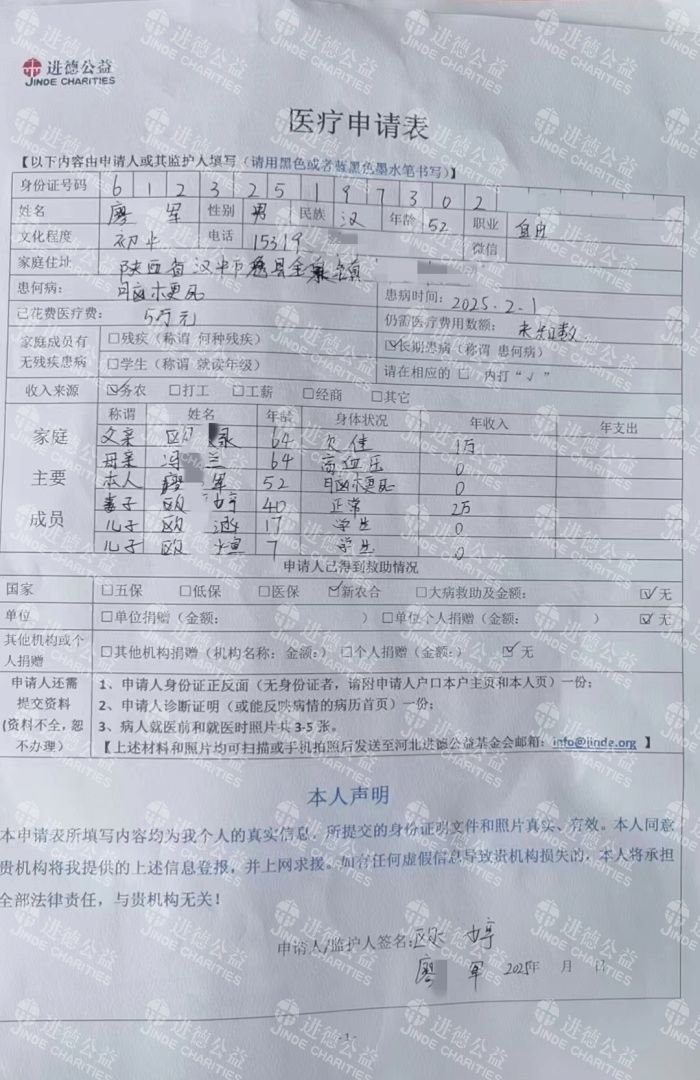 进德公益
JINDE CHARITIES
医疗申请表
【以下内容由申请人或其监护人填写(请用黑色或者蓝黑色墨水笔书写)】
身份证号码 6 1 2 3 2 5 1 9 7 3 0 2
姓名 廖 军 性别 男 民族 汉 年龄 52 职业 自由
文化程度 初中 电话 15319 微信
家庭住址 陕西省汉中市 县 镇
患何病: 脑梗死 患病时间: 2025.2.1
已花费医疗费: 5万元 仍需医疗费用数额: 未知数
家庭成员有无残疾患病 □残疾(称谓 何种残疾) ☑长期患病(称谓 患何病)
□学生(称谓 就读年级) 请在相应的 □ 内打“√”
收入来源 ☑务农 □打工 □工薪 □经商 □其它
家庭主要成员 称谓 姓名 年龄 身体状况 年收入 年支出
父亲 欧 录 64 欠佳 1万
母亲 冯 兰 64 高血压 0
本人 廖 军 52 脑梗死 0
妻子 欧 婷 40 正常 2万
儿子 欧 17 学生 0
儿子 欧 7 学生 0
申请人已得到救助情况
国家 □五保 □低保 □医保 ☑新农合 □大病救助及金额: ☑无
单位 □单位捐赠(金额: ) □单位个人捐赠(金额: ) ☑无
其他机构或个人捐赠 □其他机构捐赠(机构名称: 金额:) □个人捐赠(金额:) ☑无
申请人还需提交资料(资料不全,恕不办理)
1、申请人身份证正反面(无身份证者,请附申请人户口本户主页和本人页)一份;
2、申请人诊断证明(或能反映病情的病历首页)一份;
3、病人就医前和就医时照片共 3-5 张。
【上述材料和照片均可扫描或手机拍照后发送至河北进德公益基金会邮箱:info@jinde.org 】
本人声明
本申请表所填写内容均为我个人的真实信息,所提交的身份证明文件和照片真实、有效。本人同意
贵机构将我提供的上述信息登报,并上网求援。如有任何虚假信息导致贵机构损失的,本人将承担
全部法律责任,与贵机构无关!
申请人/监护人签名: 欧 婷
廖 军 2025年 月 日
- 1 -